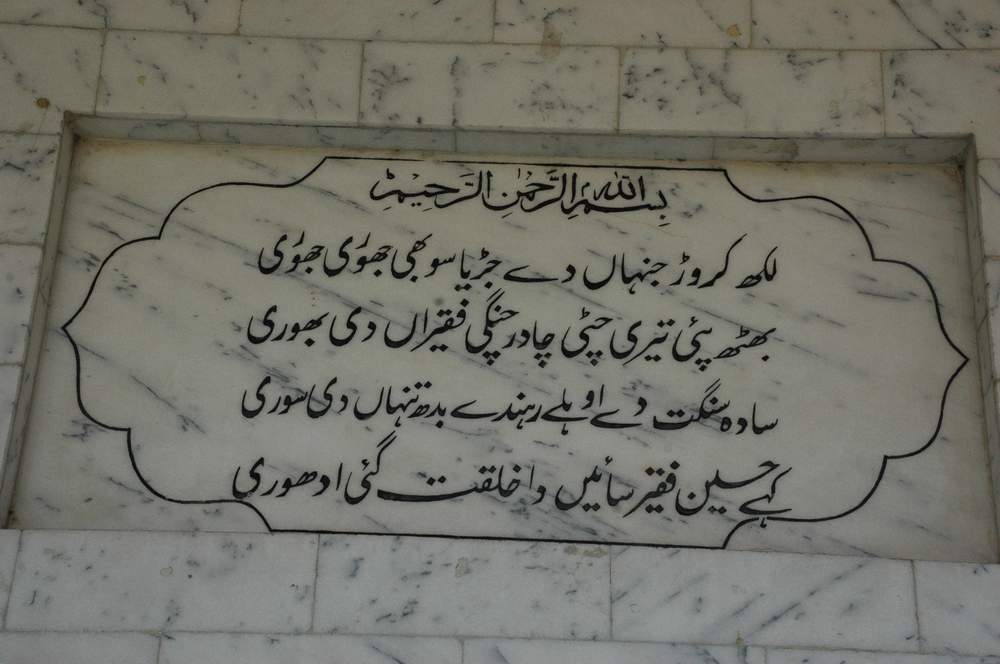 بِسْمِ اللهِ الرَّحْمٰنِ الرَّحِيْمِ
لکھ کروڑ جنہاں دے جڑیا سو بھی جھوٰی جھوٰی
بھٹھ پئی تیری چٹی چادر چنگی فقیراں دی بھوری
سادہ سنگت دے اوہلے رہندے بدھ تنہاں دی سوری
کہے حسین فقیر سائیں دا خلقت گئی ادھوری